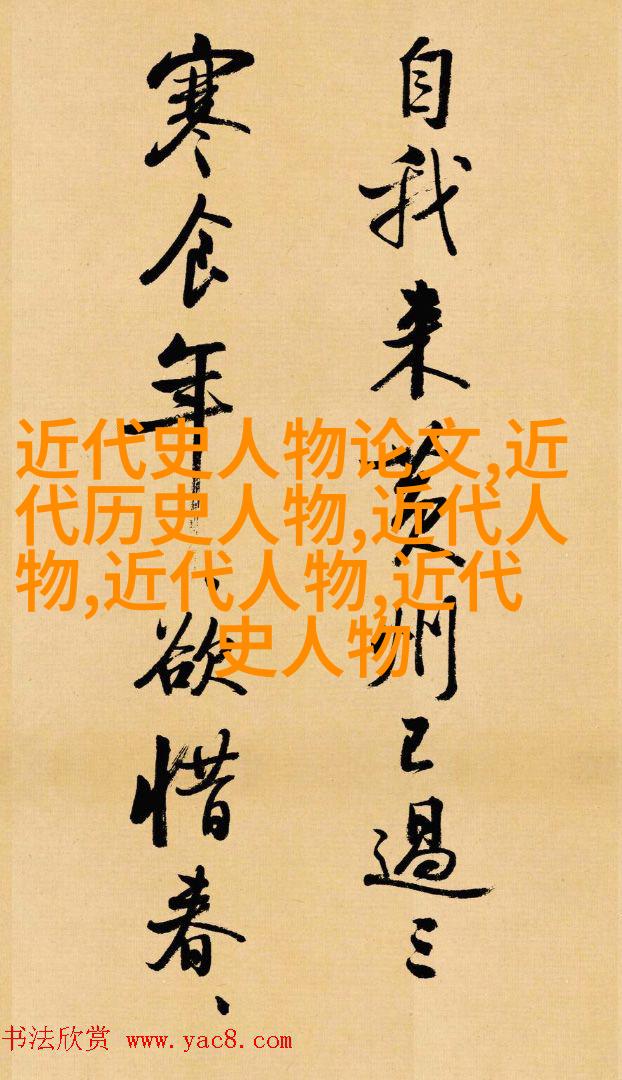 自我来黄州已過三
寒食年年欲惜春、
近代史人物论文,近
代历史人物,近代人
物,近代人物,近代
史人物
书法欣赏 www.yac8.com